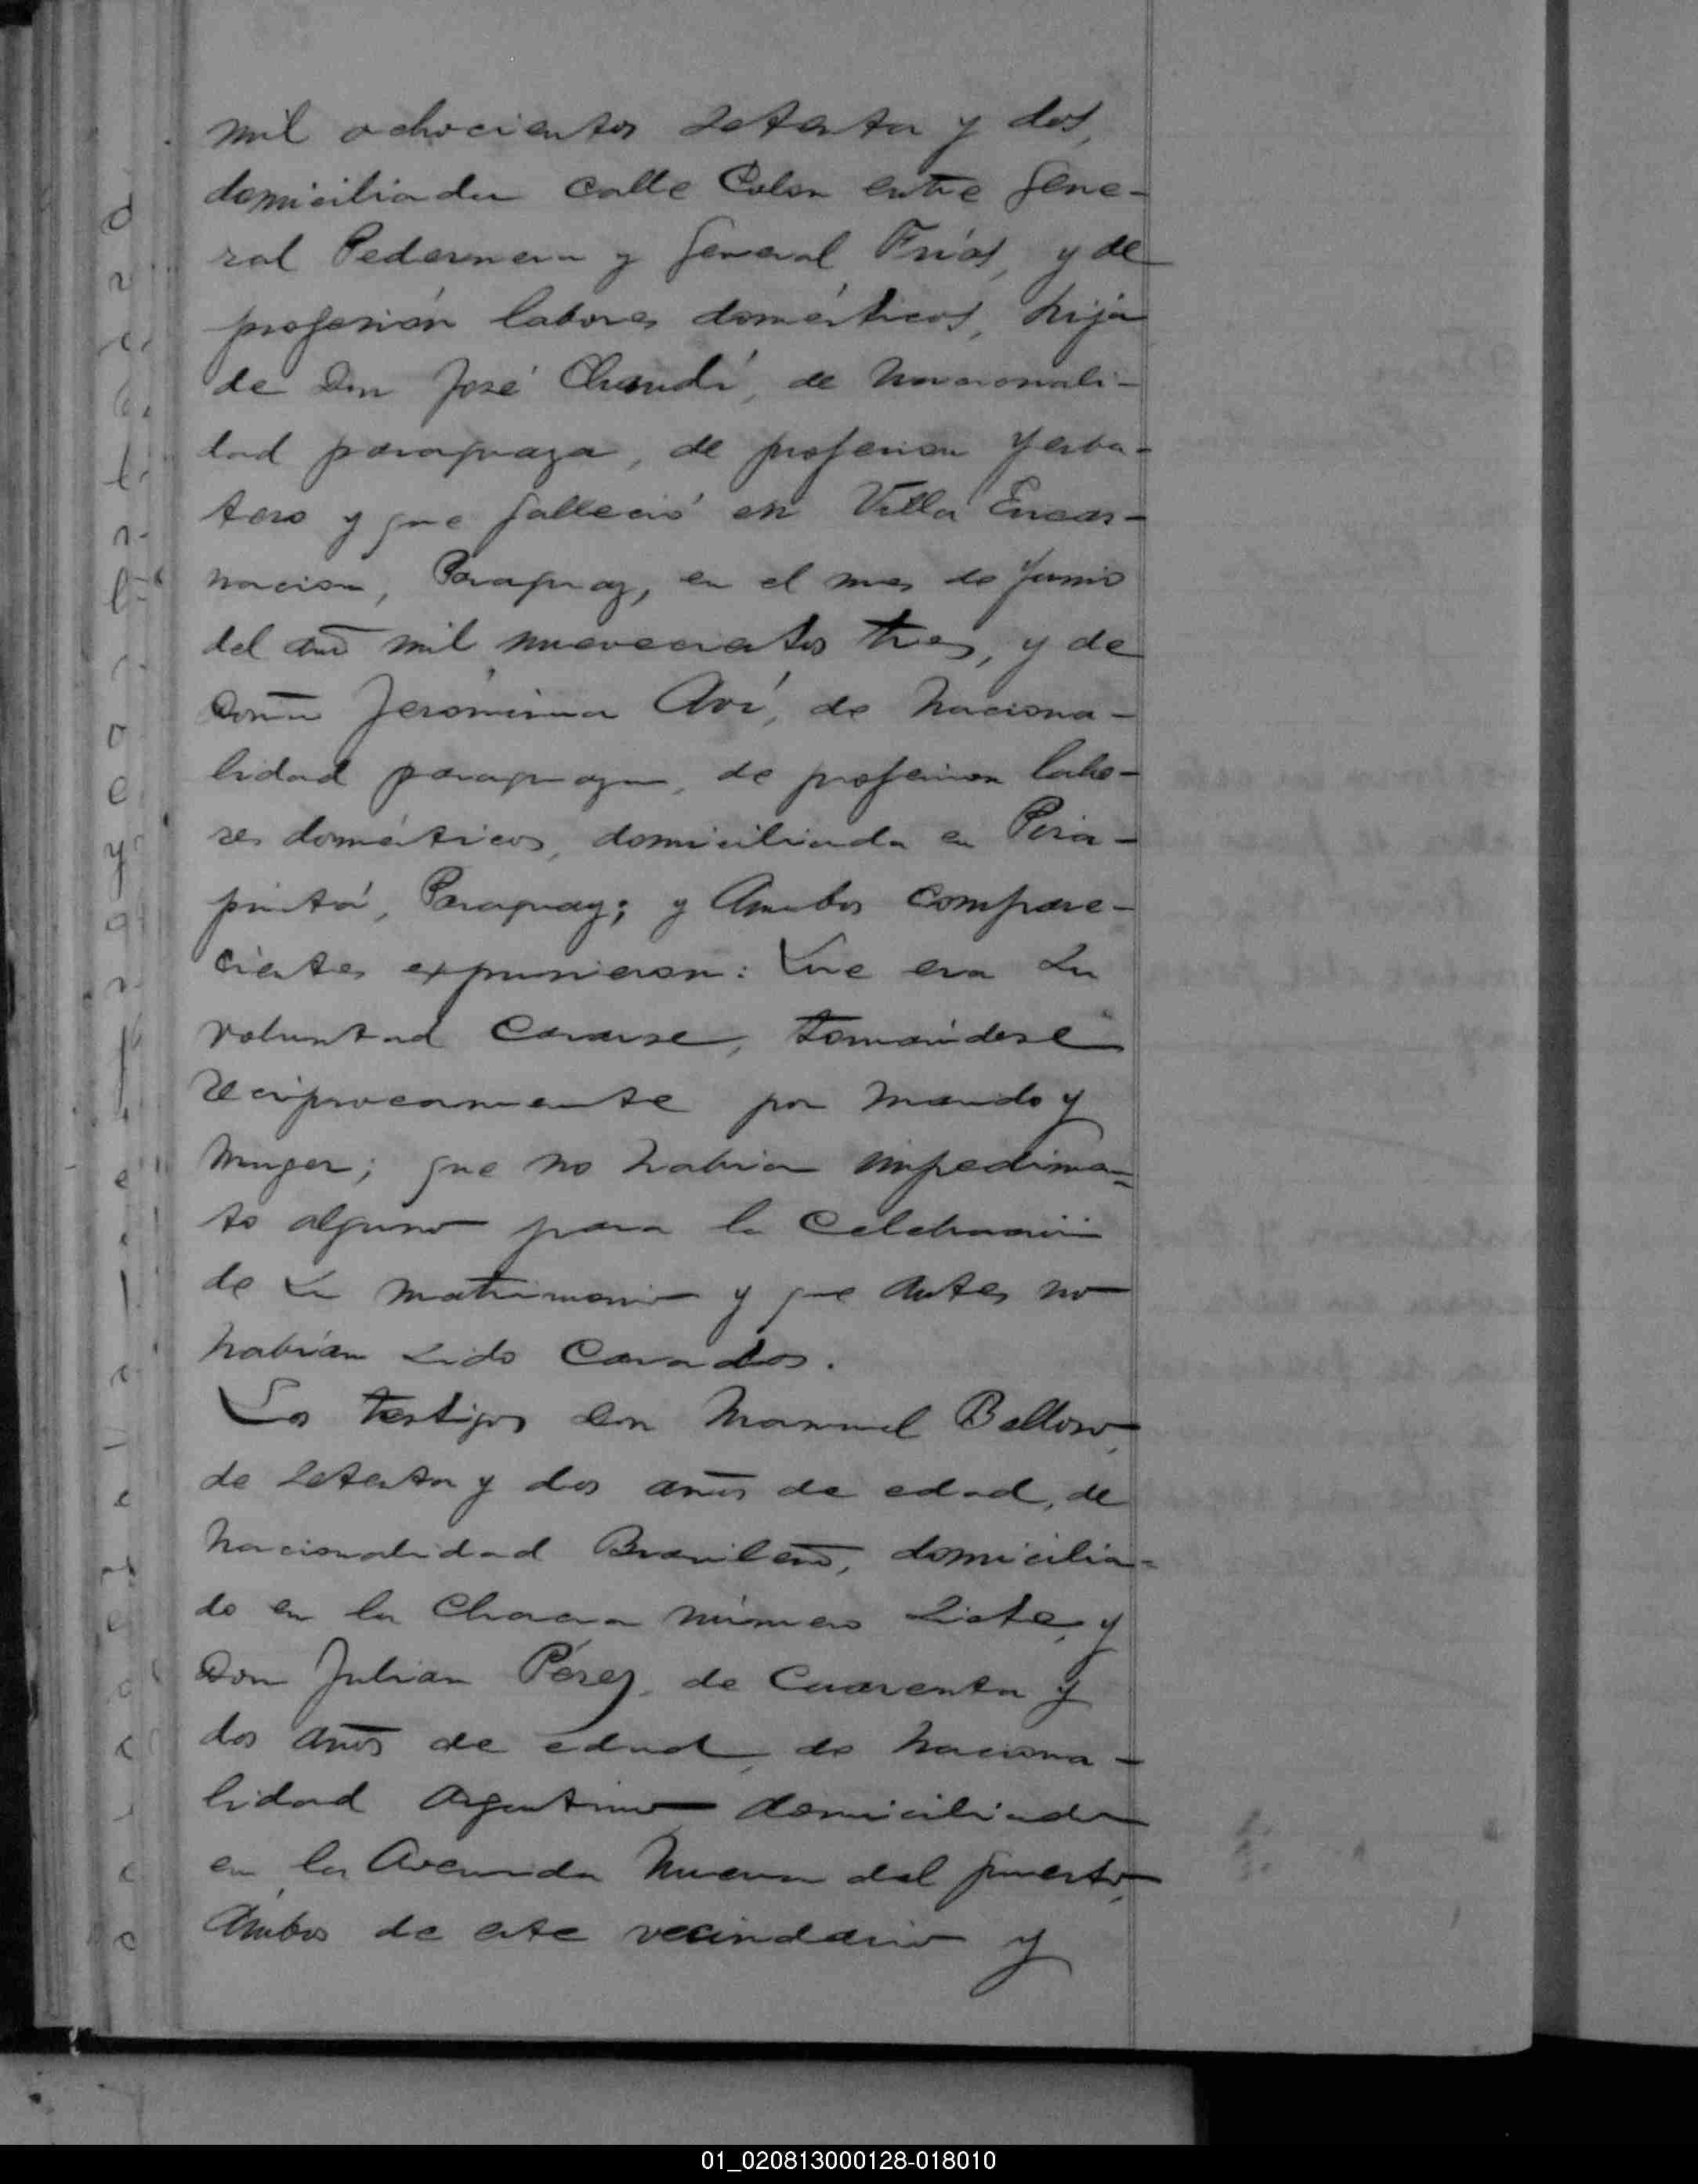 mil ochocientos setenta y dos,
domiciliada calle Colon entre Gene-
ral Pedernera y General Frías, y de
profesión labores domésticos, hija
de Don José Chandí, de nacionali-
dad paraguaya, de profesion yerba-
tero y que falleció en Villa Encar-
nacion, Paraguay, en el mes de Junio
del año mil novecientos tres, y de
Doña Jerónima Aví, de naciona-
lidad paraguaya, de profesion labo-
res domésticos, domiciliada en Pira-
puitá, Paraguay; y Ambos compare-
cientes expusieron: Que era su
voluntad casarse, tomándose
reciprocamente por marido y
muger; que no habia impedimen=
to alguno para la celebración
de su matrimonio y que antes no
habían sido casados.
Los testigos Don Manuel Belloso,
de setenta y dos años de edad, de
nacionalidad Brasileño, domicilia=
do en la Chacra número siete, y
Don Julian Pérez, de cuarenta y
dos años de edad, de naciona-
lidad Argentino domiciliado
en la Avenida nueva del puerto,
Ambos de este vecindario y
01_020813000128-018010